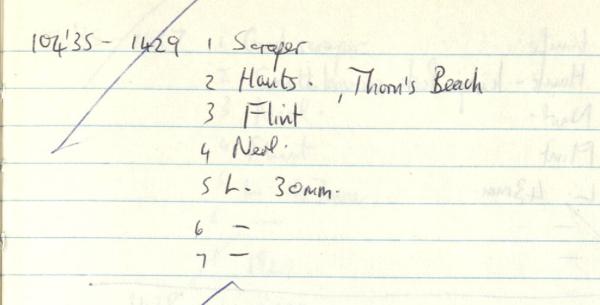 104'35 - 1429 1 Scraper
2 Hants. , Thorn's Beach
3 Flint
4 Neol.
5 L. 30mm.
6 —
7 —